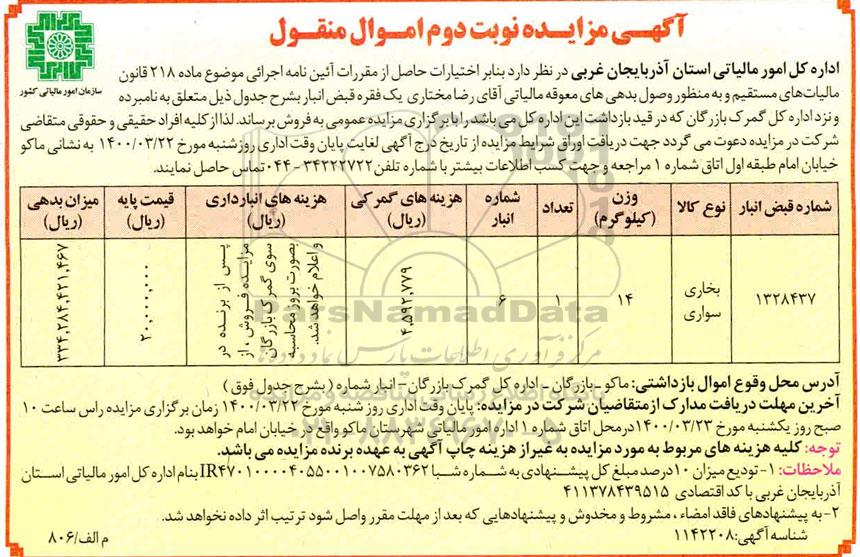 آگهی مزایده نوبت دوم اموال منقول
سازمان امور مالیاتی کشور
اداره کل امور مالیاتی استان آذربایجان غربی در نظر دارد بنابر اختیارات حاصل از مقررات آئین نامه اجرائی موضوع ماده ۲۱۸ قانون
مالیات‌های مستقیم و به منظور وصول بدهی های معوقه مالیاتی آقای رضا مختاری یک فقره قبض انبار بشرح جدول ذیل متعلق به نامبرده
و نزد اداره کل گمرک بازرگان که در قید بازداشت این اداره کل می باشد را با برگزاری مزایده عمومی به فروش برساند. لذا از کلیه افراد حقیقی و حقوقی متقاضی
شرکت در مزایده دعوت می گردد جهت دریافت اوراق شرایط مزایده از تاریخ درج آگهی لغایت پایان وقت اداری روز شنبه مورخ ۱۴۰۰/۰۳/۲۲ به نشانی ماکو
خیابان امام طبقه اول اتاق شماره ۱ مراجعه و جهت کسب اطلاعات بیشتر با شماره تلفن ۳۴۲۲۲۷۲۲-۰۴۴ تماس حاصل نمایند.
شماره قبض انبار نوع کالا وزن (کیلوگرم) تعداد شماره انبار هزینه های گمرکی (ریال) هزینه های انبارداری (ریال) قیمت پایه (ریال) میزان بدهی (ریال)
۱۳۲۸۴۳۷ بخاری سواری ۱۴ ۱ ۶ ۴,۵۹۲,۷۷۹ پس از برنده در مزایده فروش، از سوی گمرک بازرگان بصورت بروز محاسبه و اعلام خواهد شد. ۲۰,۰۰۰,۰۰۰ ۳۳۴,۲۸۴,۴۲۱,۴۶۷
ParsNamadData
مرکز فرآوری اطلاعات پارس نماد داده ها
آدرس محل وقوع اموال بازداشتی: ماکو - بازرگان - اداره کل گمرک بازرگان - انبار شماره (بشرح جدول فوق)
آخرین مهلت دریافت مدارک از متقاضیان شرکت در مزایده: پایان وقت اداری روز شنبه مورخ ۱۴۰۰/۰۳/۲۲ زمان برگزاری مزایده راس ساعت ۱۰
صبح روز یکشنبه مورخ ۱۴۰۰/۰۳/۲۳ درمحل اتاق شماره ۱ اداره امور مالیاتی شهرستان ماکو واقع در خیابان امام خواهد بود.
توجه: کلیه هزینه های مربوط به مورد مزایده به غیر از هزینه چاپ آگهی به عهده برنده مزایده می باشد.
ملاحظات: ۱- تودیع میزان ۱۰درصد مبلغ کل پیشنهادی به شماره شبا IR۴۷۰۱۰۰۰۰۴۰۵۵۰۰۱۰۰۷۵۸۰۳۶۲ بنام اداره کل امور مالیاتی استان
آذربایجان غربی با کد اقتصادی ۴۱۱۳۷۸۴۳۹۵۱۵
۲- به پیشنهادهای فاقد امضاء، مشروط و مخدوش و پیشنهادهایی که بعد از مهلت مقرر واصل شود ترتیب اثر داده نخواهد شد.
شناسه آگهی: ۱۱۴۲۲۰۸ م الف/۸۰۶